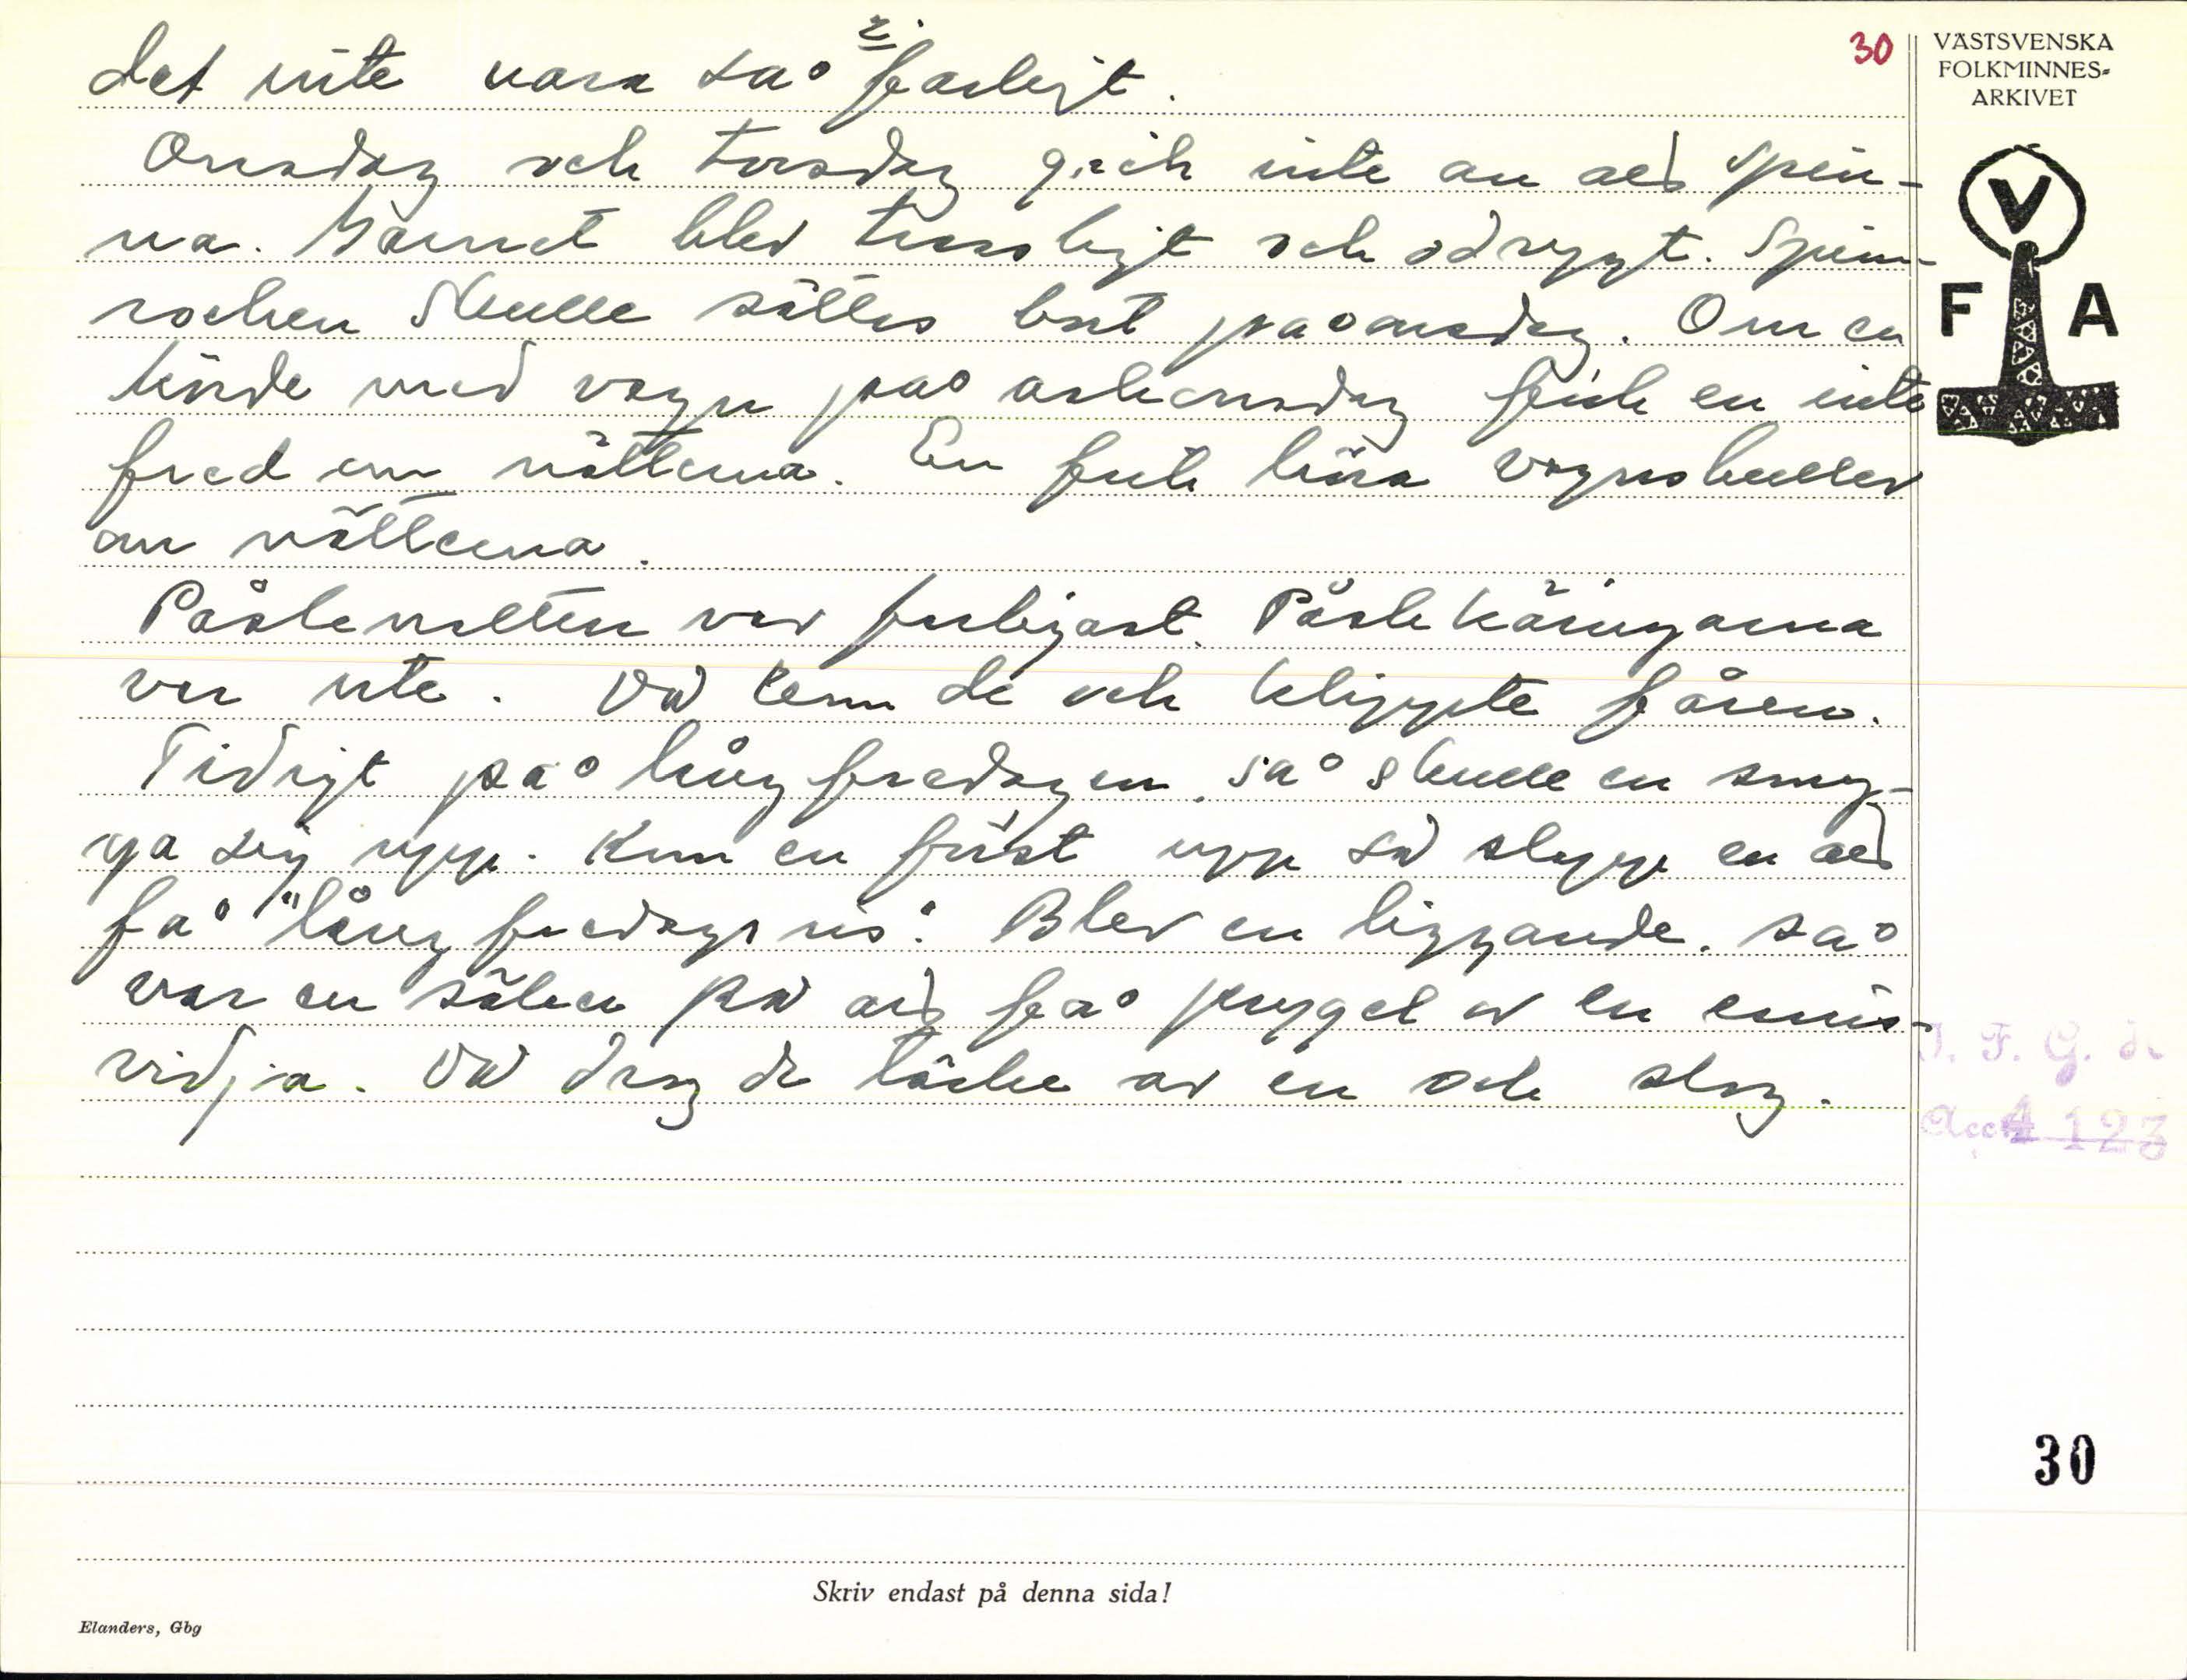 30
VÄSTSVENSKA
FOLKMINNES-
ARKIVET
det inte vara så farligt.
Onsdag och torsdag gick inte an att spin-
na. Garnet blev trassligt och odrygt. Spinn-
rocken skulle sättas bort på onsdag. Om en
körde med vagn på askonsdag fick en inte
fred om nätterna. En fick höra vagnsbuller
om nätterna.
Påsknatten var farligast. Påskkäringarna
var ute. Då kom de och klippte fåren.
Tidigt på långfredagen så skulle en smy-
ga sig upp. Kom en först upp så slapp en att
få "långfredagsris". Blev en liggande. så
var en säker på att få prygel av en enris-
vidja. Då drog de täcke av en och slog.
V
F A
I. F. G. s.
Acc 4123
30
Skriv endast på denna sida!
Elanders, Gbg